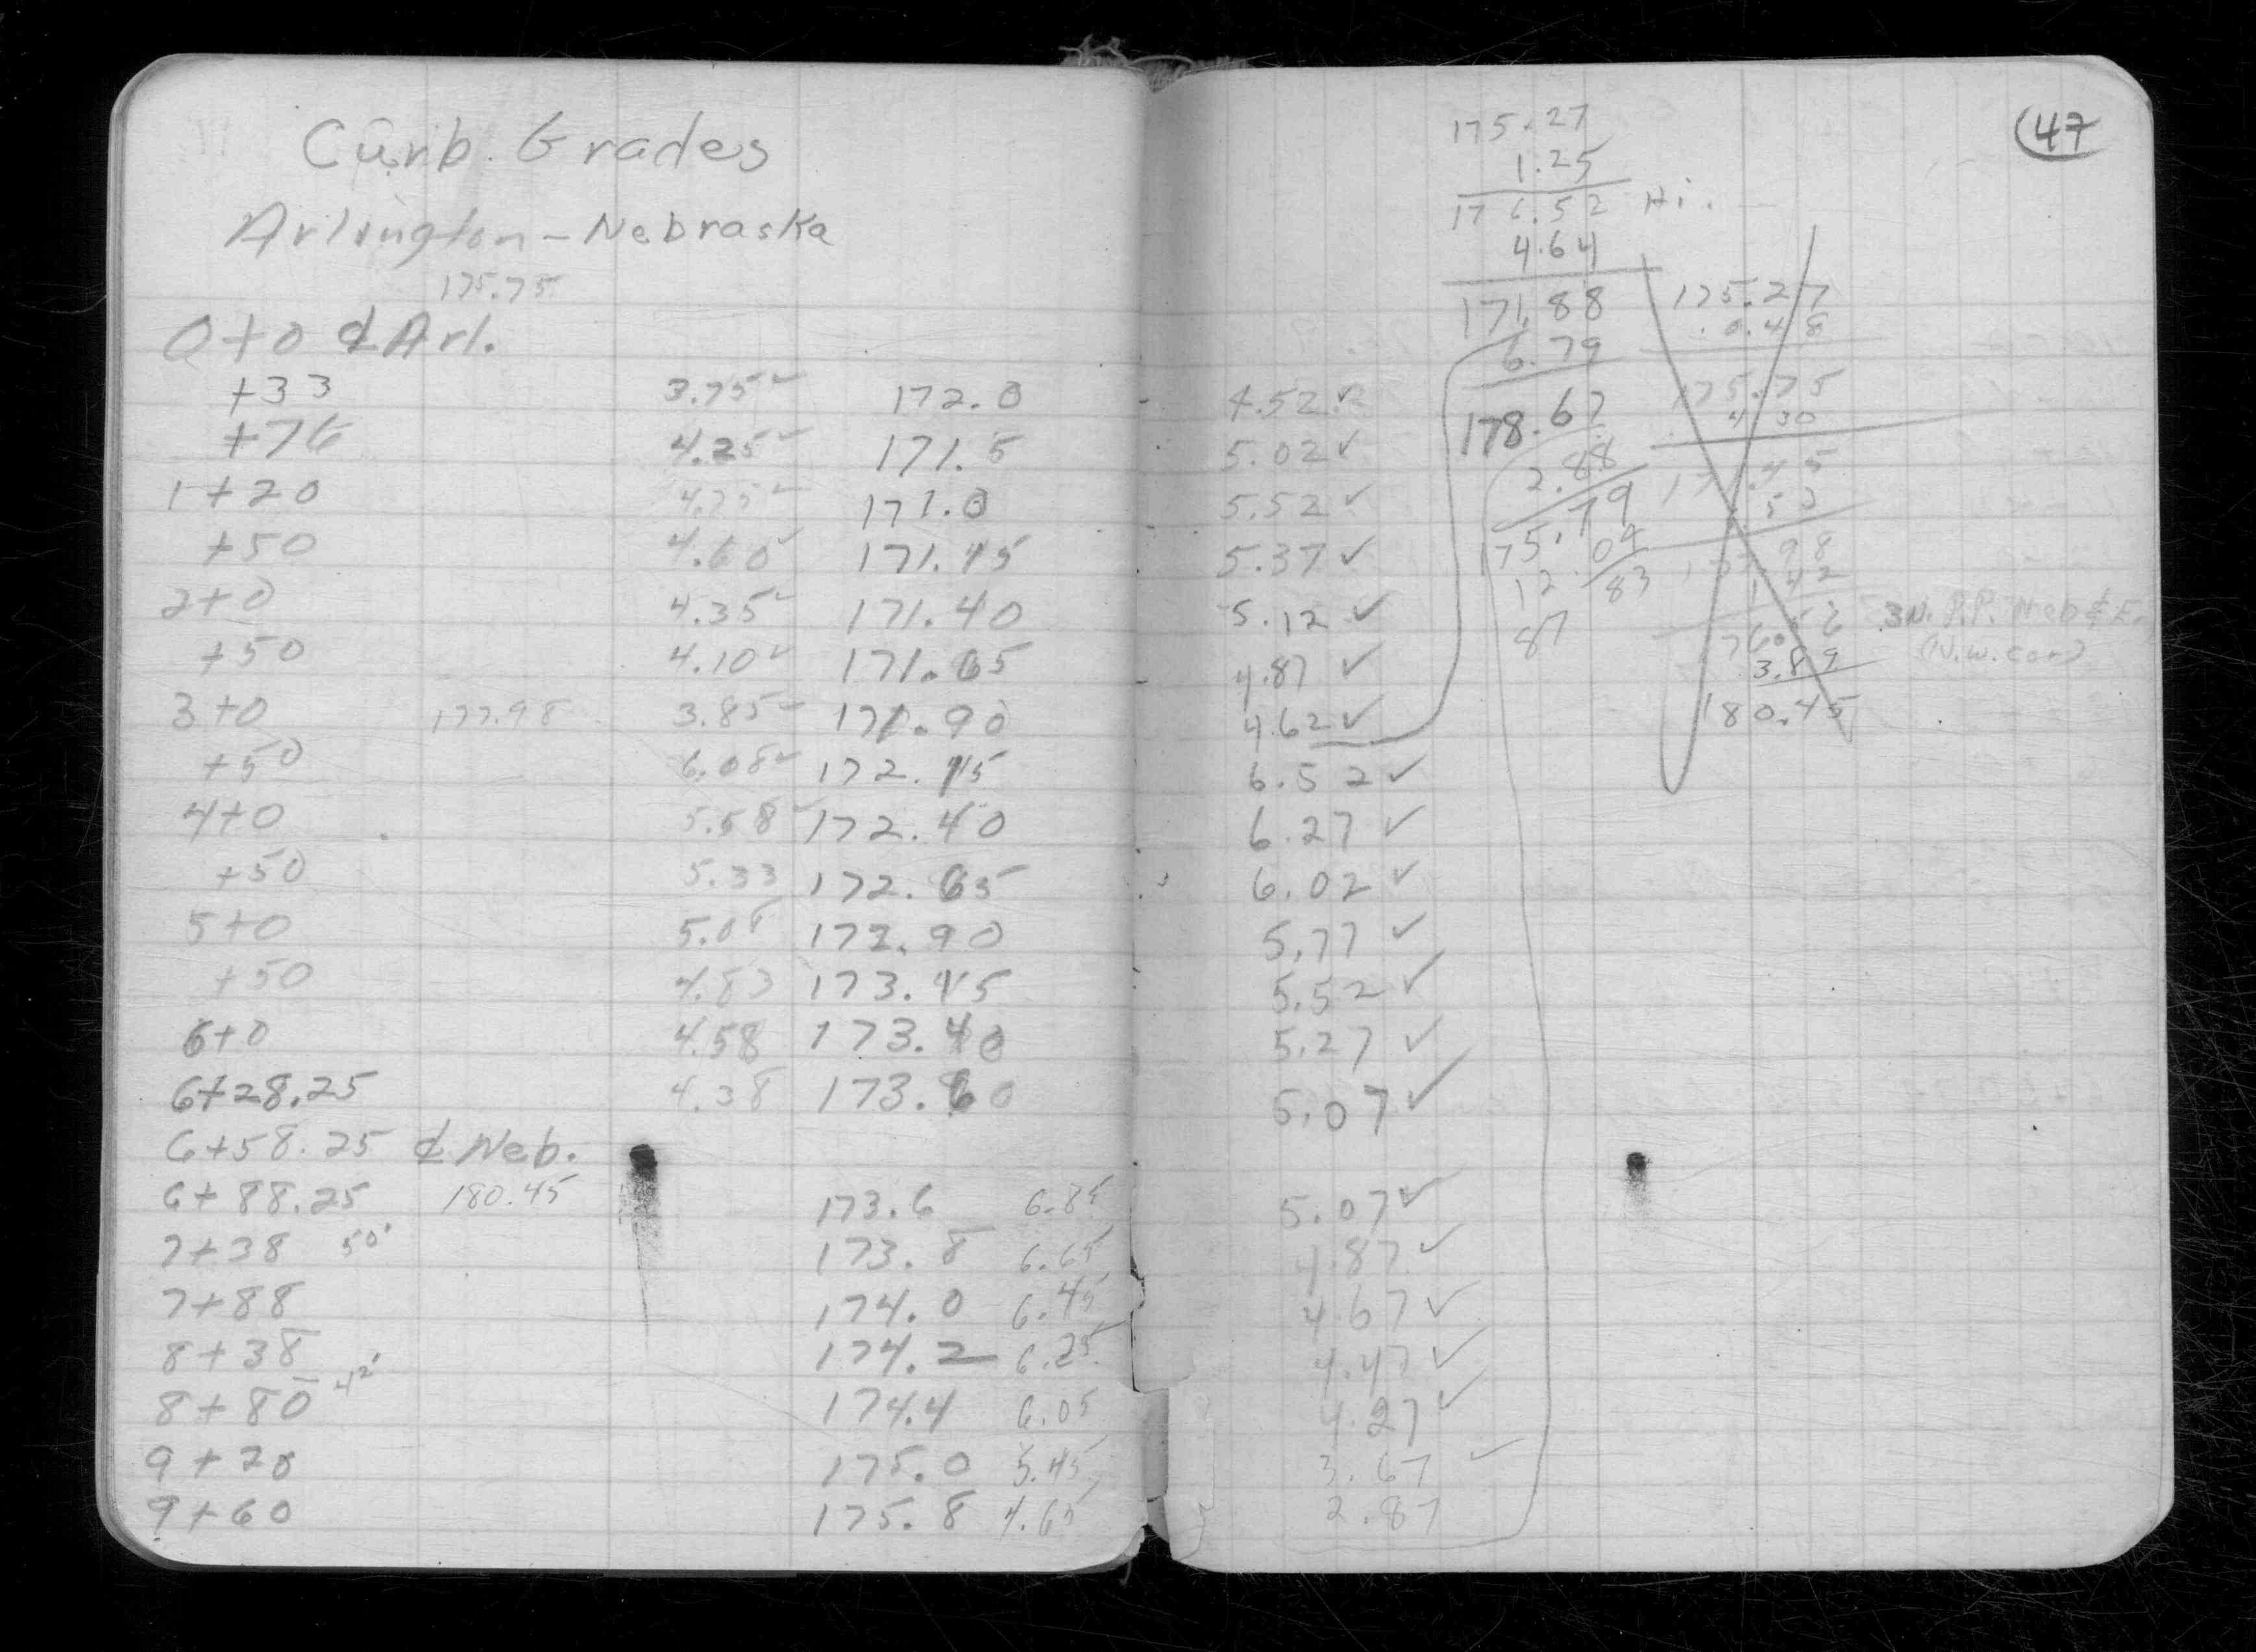 Curb Grades
Arlington - Nebraska
175.75
0+0 ₵ Arl.
+33 3.75✓ 172.0
+76 4.25✓ 171.5
1+20 4.75✓ 171.0
+50 4.60✓ 171.15
2+0 4.35✓ 171.40
+50 4.10✓ 171.65
3+0 177.98 3.85✓ 171.90
+50 6.08✓ 172.15
4+0 5.58✓ 172.40
+50 5.33 172.65
5+0 5.08 172.90
+50 4.83 173.15
6+0 4.58 173.40
6+28.25 4.38 173.60
6+58.25 ₵ Neb.
6+88.25 180.45 173.6 6.85
7+38 50' 173.8 6.65
7+88 174.0 6.45
8+38 174.2 6.25
8+80 42' 174.4 6.05
9+20 175.0 5.45
9+60 175.8 4.65
47
4.52✓
5.02✓
5.52✓
5.37✓
5.12✓
4.87✓
4.62✓
6.52✓
6.27✓
6.02✓
5.77✓
5.52✓
5.27✓
5.07✓
5.07✓
4.87✓
4.67✓
4.47✓
4.27✓
3.67✓
2.87
175.27
1.25
176.52 Hi.
4.64
171.88
6.79
178.67
2.88
175.79
12.04
87 83
175.27
0.48
175.75
4.30
171.45
98
3.89
180.45
3N. P.P. Neb & E.
(N.W. cor)